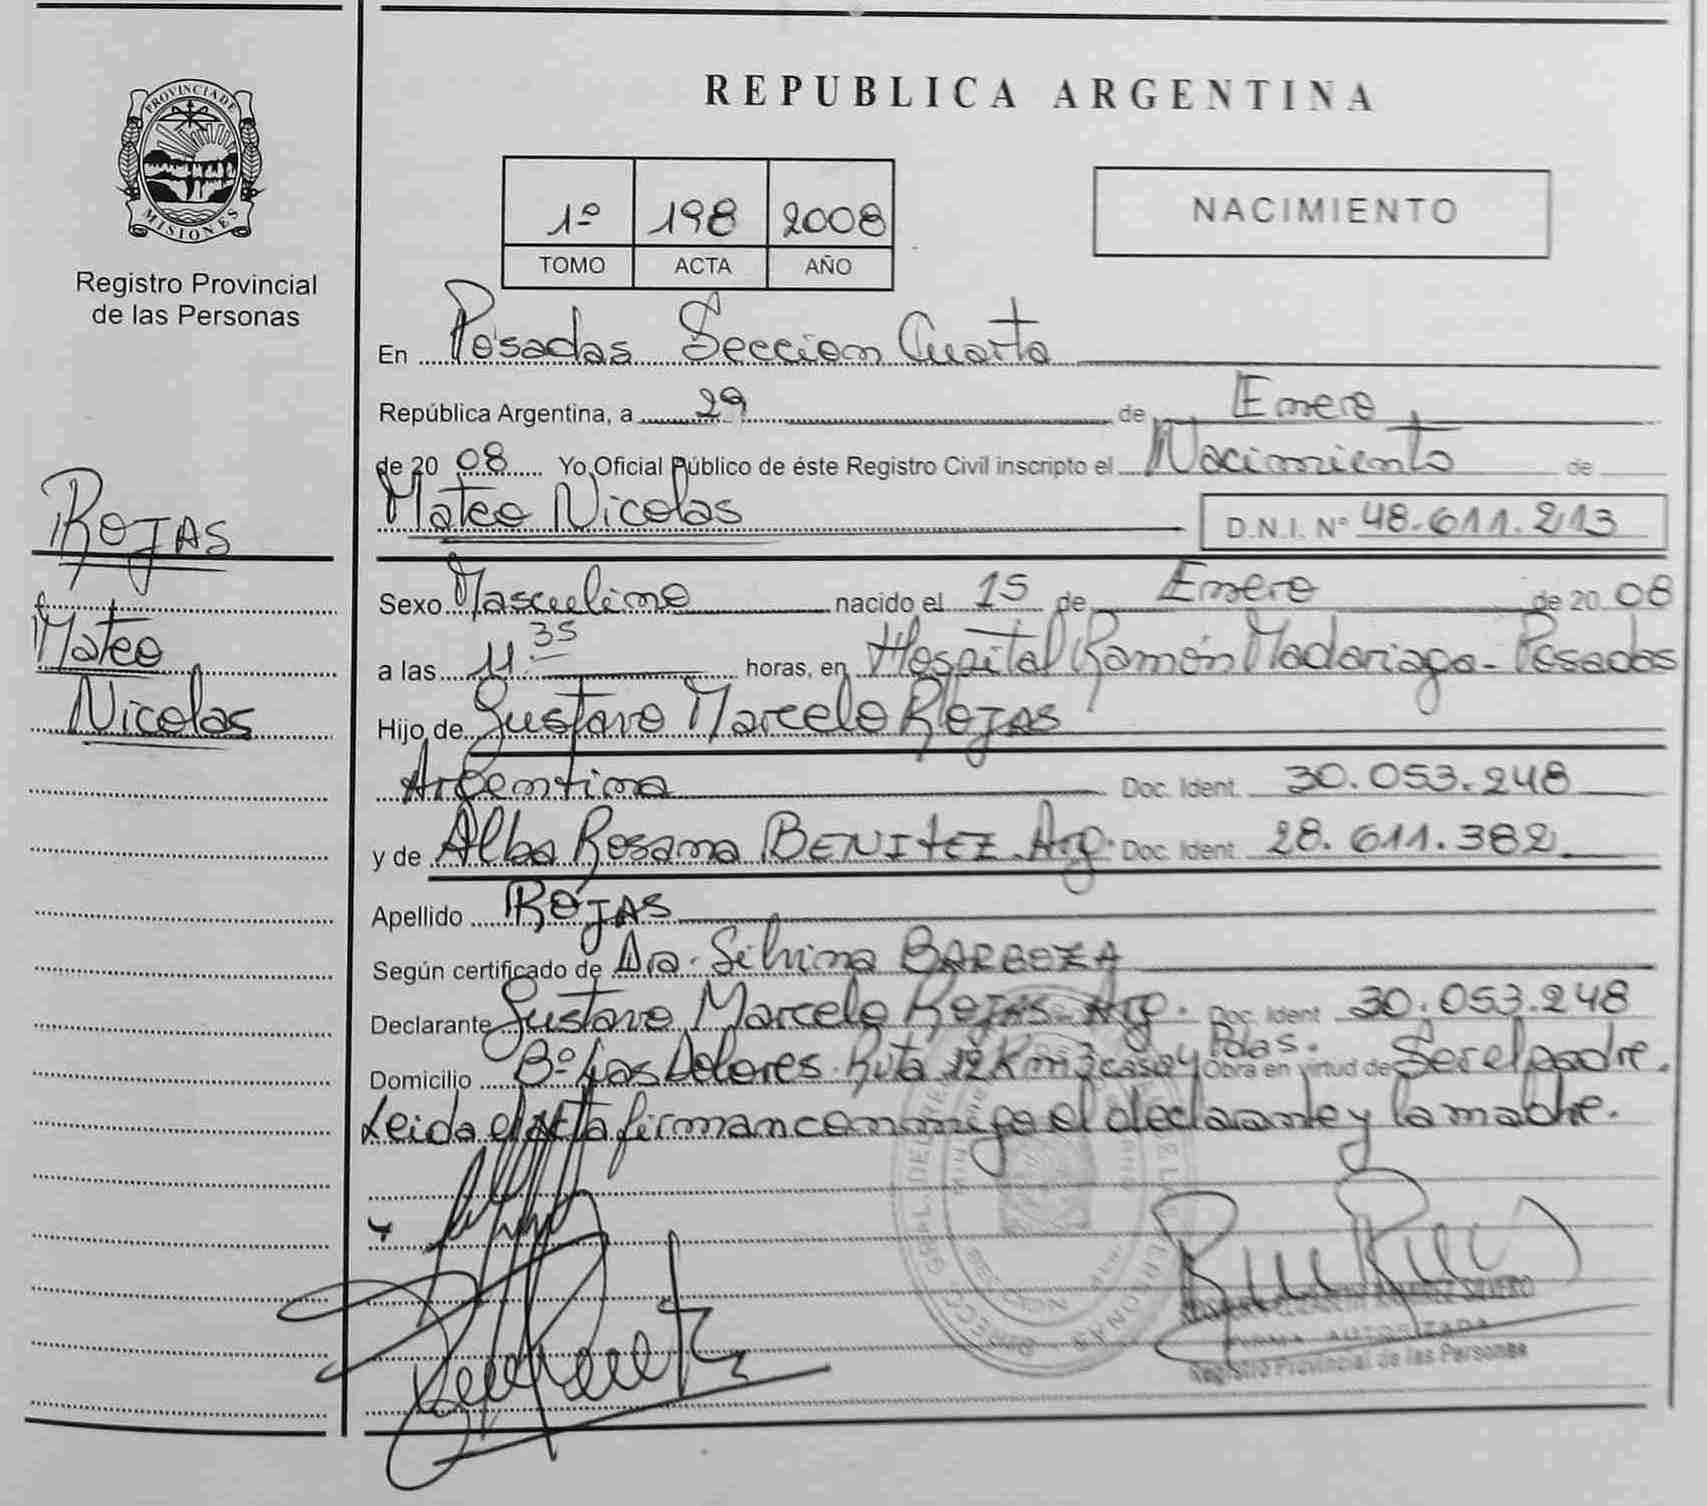 PROVINCIA DE
MISIONES
Registro Provincial
de las Personas
ROJAS
Mateo
Nicolas
REPUBLICA ARGENTINA
1º 198 2008
TOMO ACTA AÑO
NACIMIENTO
En Posadas Seccion Cuarta
República Argentina, a 29 de Enero
de 20 08 Yo Oficial Público de éste Registro Civil inscripto el Nacimiento de
Mateo Nicolas D.N.I. Nº 48.611.213
Sexo Masculino nacido el 15 de Enero de 20 08
a las 11.35 horas, en Hospital Ramón Madariaga - Posadas
Hijo de Gustavo Marcelo ROJAS
Argentina Doc. Ident. 30.053.248
y de Alba Rosana BENITEZ. Arg. Doc. Ident. 28.611.382
Apellido ROJAS
Según certificado de Dra. Silvina BARBOZA
Declarante Gustavo Marcelo ROJAS Arg. Doc. Ident 30.053.248
Domicilio Bº Los Dolores. Ruta 12 Km 3 casa 4 Pdas. Obra en virtud de Ser el padre.
Leida el Acta firman conmigo el declarante y la madre.
RAMIREZ SILVERO
FIRMA AUTORIZADA
Registro Provincial de las Personas